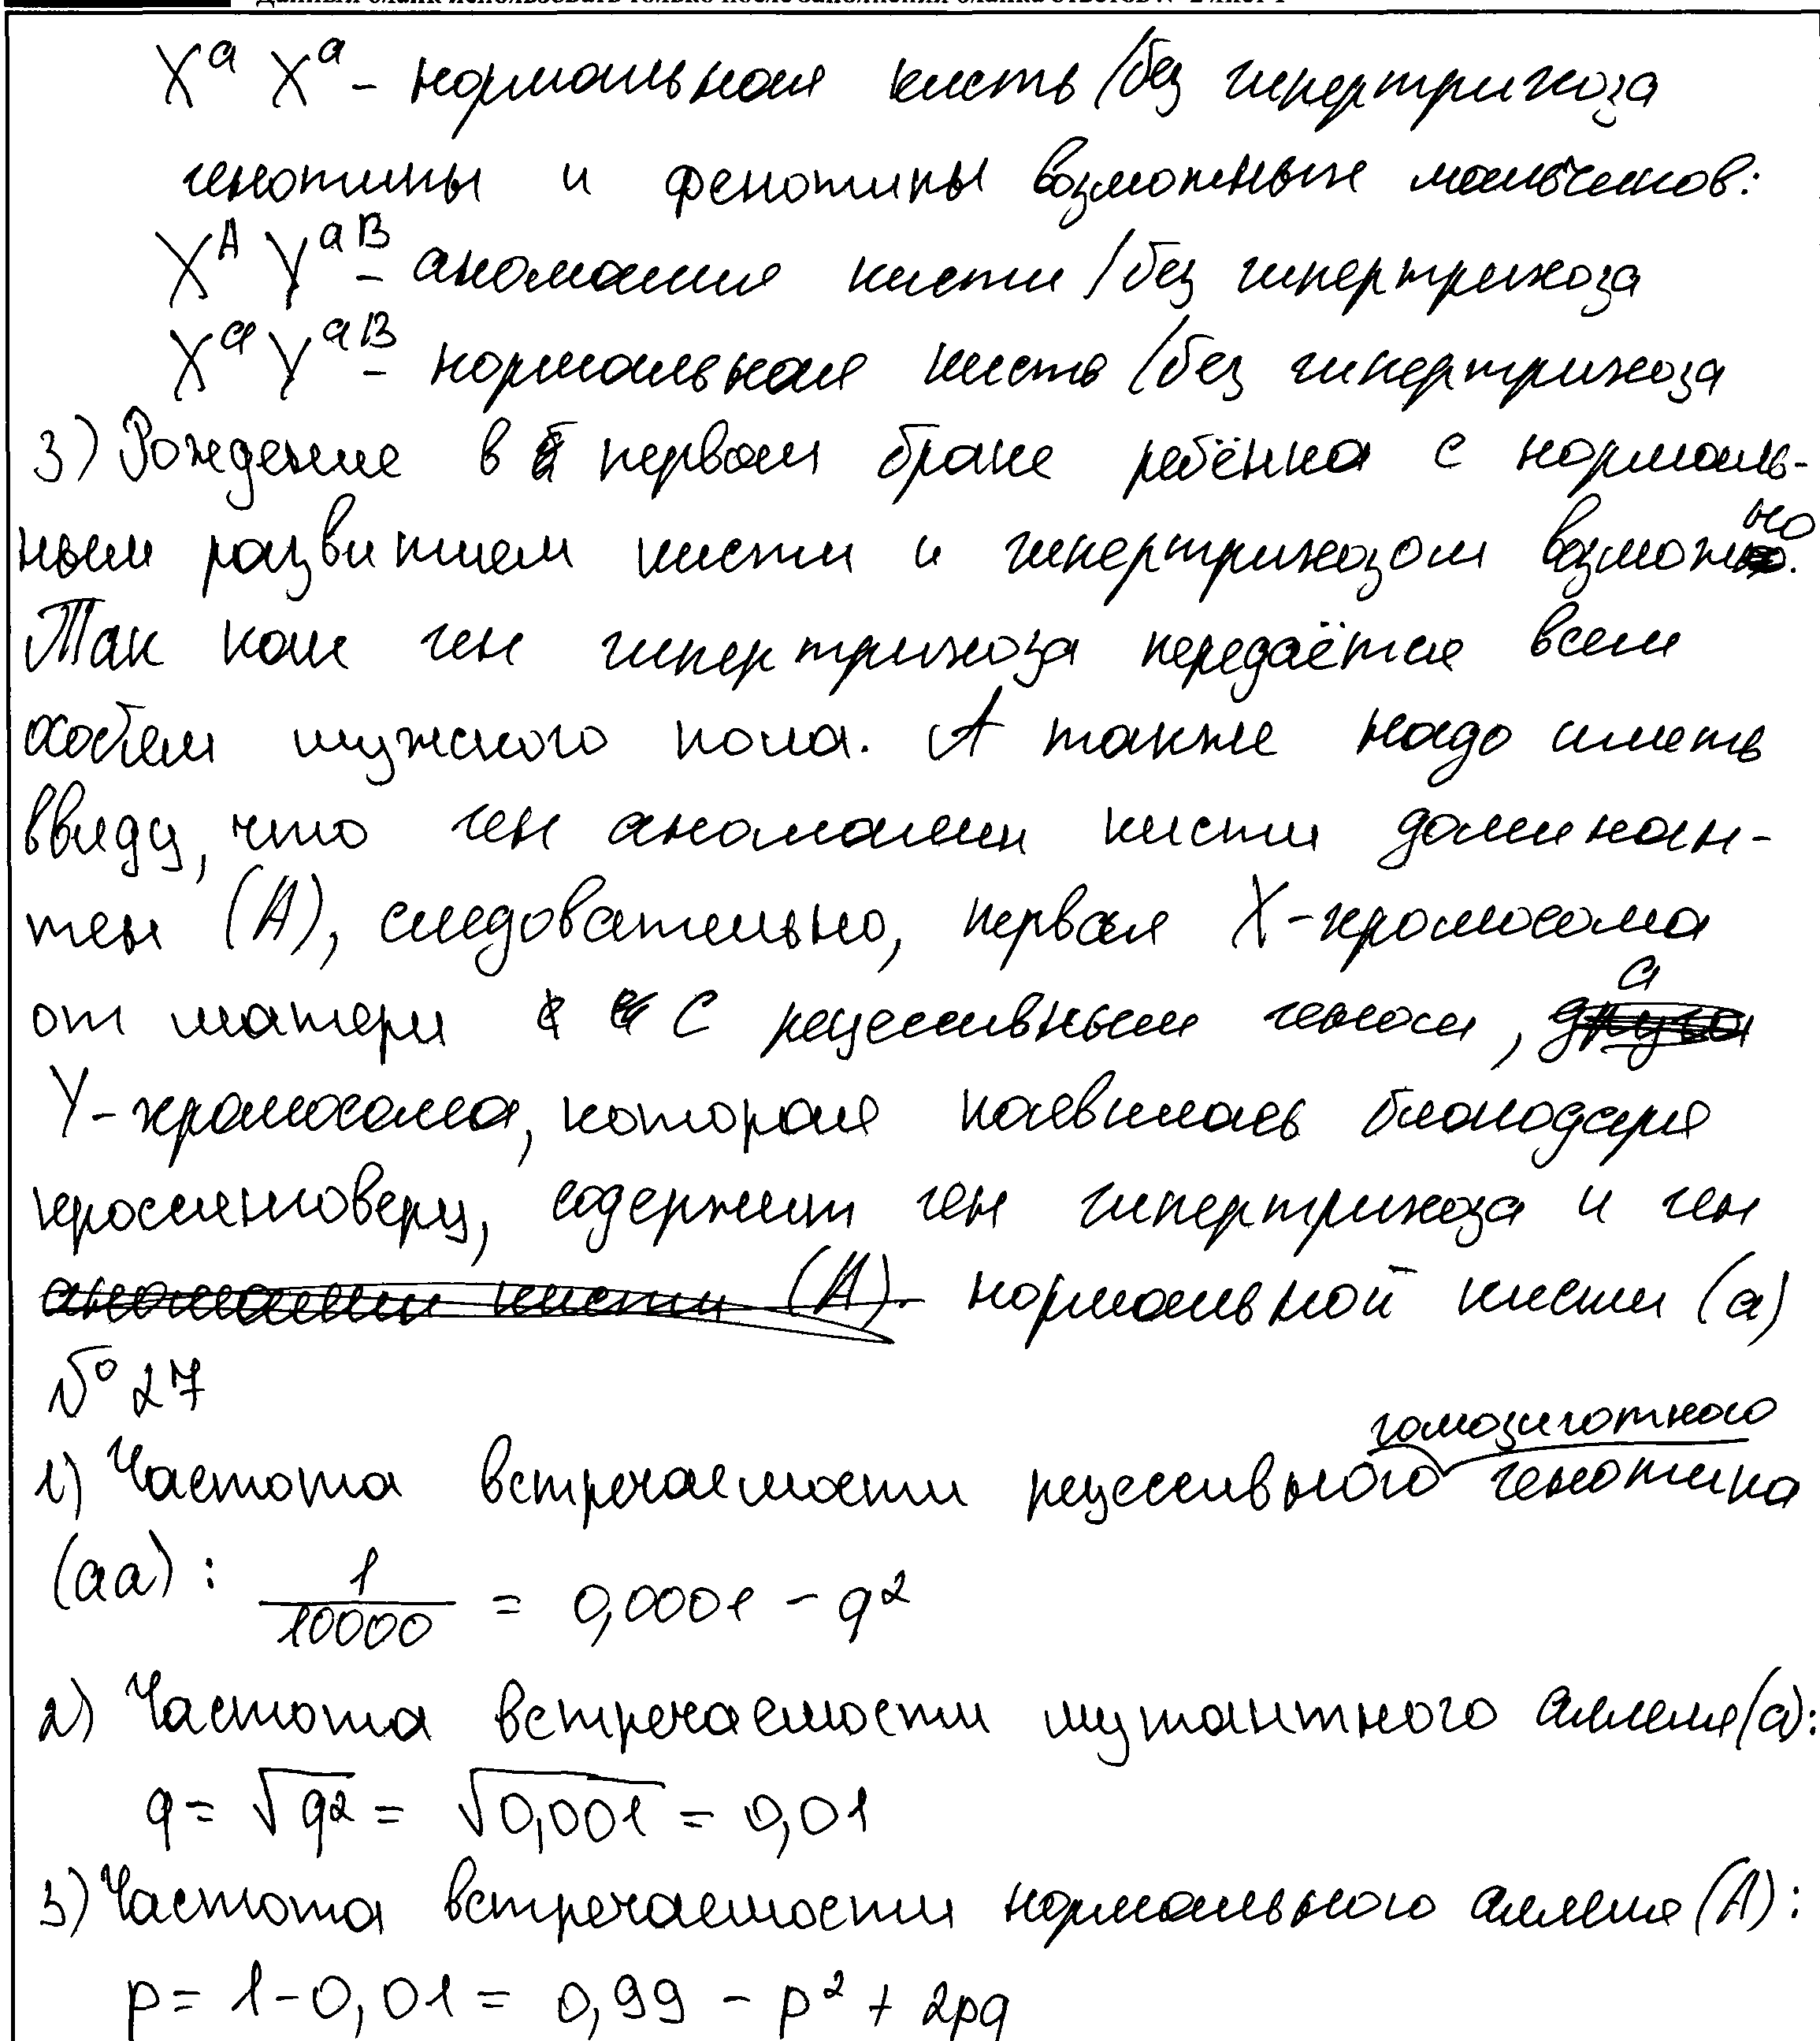 Данный бланк использовать только после заполнения бланка ответов № 2 лист 1
X^a X^a - нормальная кисть /без гипертрихоза
генотипы и фенотипы возможных мальчиков:
X^A Y^aB - аномалия кисти /без гипертрихоза
X^a Y^aB - нормальная кисть /без гипертрихоза
3) Рождение в первом браке ребёнка с нормаль-
ным развитием кисти и гипертрихозом возможно.
Так как ген гипертрихоза передаётся всем
особям мужского пола. А также надо иметь
ввиду, что ген аномалии кисти доминан-
тен (А), следовательно, первая X-хромосома
от матери с рецессивным геном, а
Y-хромосома, которая появилась благодаря
кроссинговеру, содержит ген гипертрихоза и ген
аномалии кисти (А). нормальной кисти (а)
№ 27
1) Частота встречаемости рецессивного гомозиготного генотипа
(аа): 1/10000 = 0,0001 - q²
2) Частота встречаемости мутантного аллеля (а):
q = √q² = √0,001 = 0,01
3) Частота встречаемости нормального аллеля (А):
p = 1 - 0,01 = 0,99 - p² + 2pq